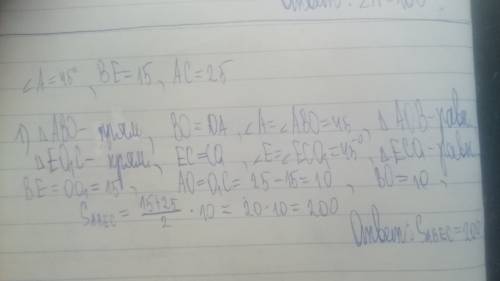 Ответ:
∠A=45°, BE=15, AC=25
1) △ABO- прям, BO=OA, ∠A=∠ABO=45, △AOB-равн
△EO₁C- прям, EC=CO, ∠E=∠ECO₁=45°, △ECO-равн
BE=OO₁=15, AO=O₁C=25-15=10, BO=10,
Sᴀʙᴇᴄ= (15+25)/2 · 10 = 20·10=200
Ответ: Sᴀʙᴇᴄ=200